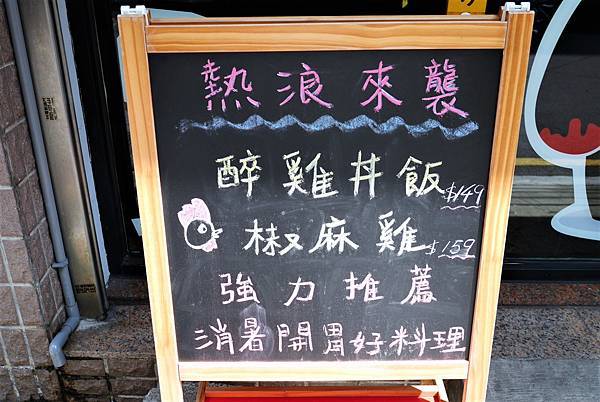 熱浪來襲
醉雞丼飯 $149
椒麻雞 $159
強力推薦
消暑開胃好料理